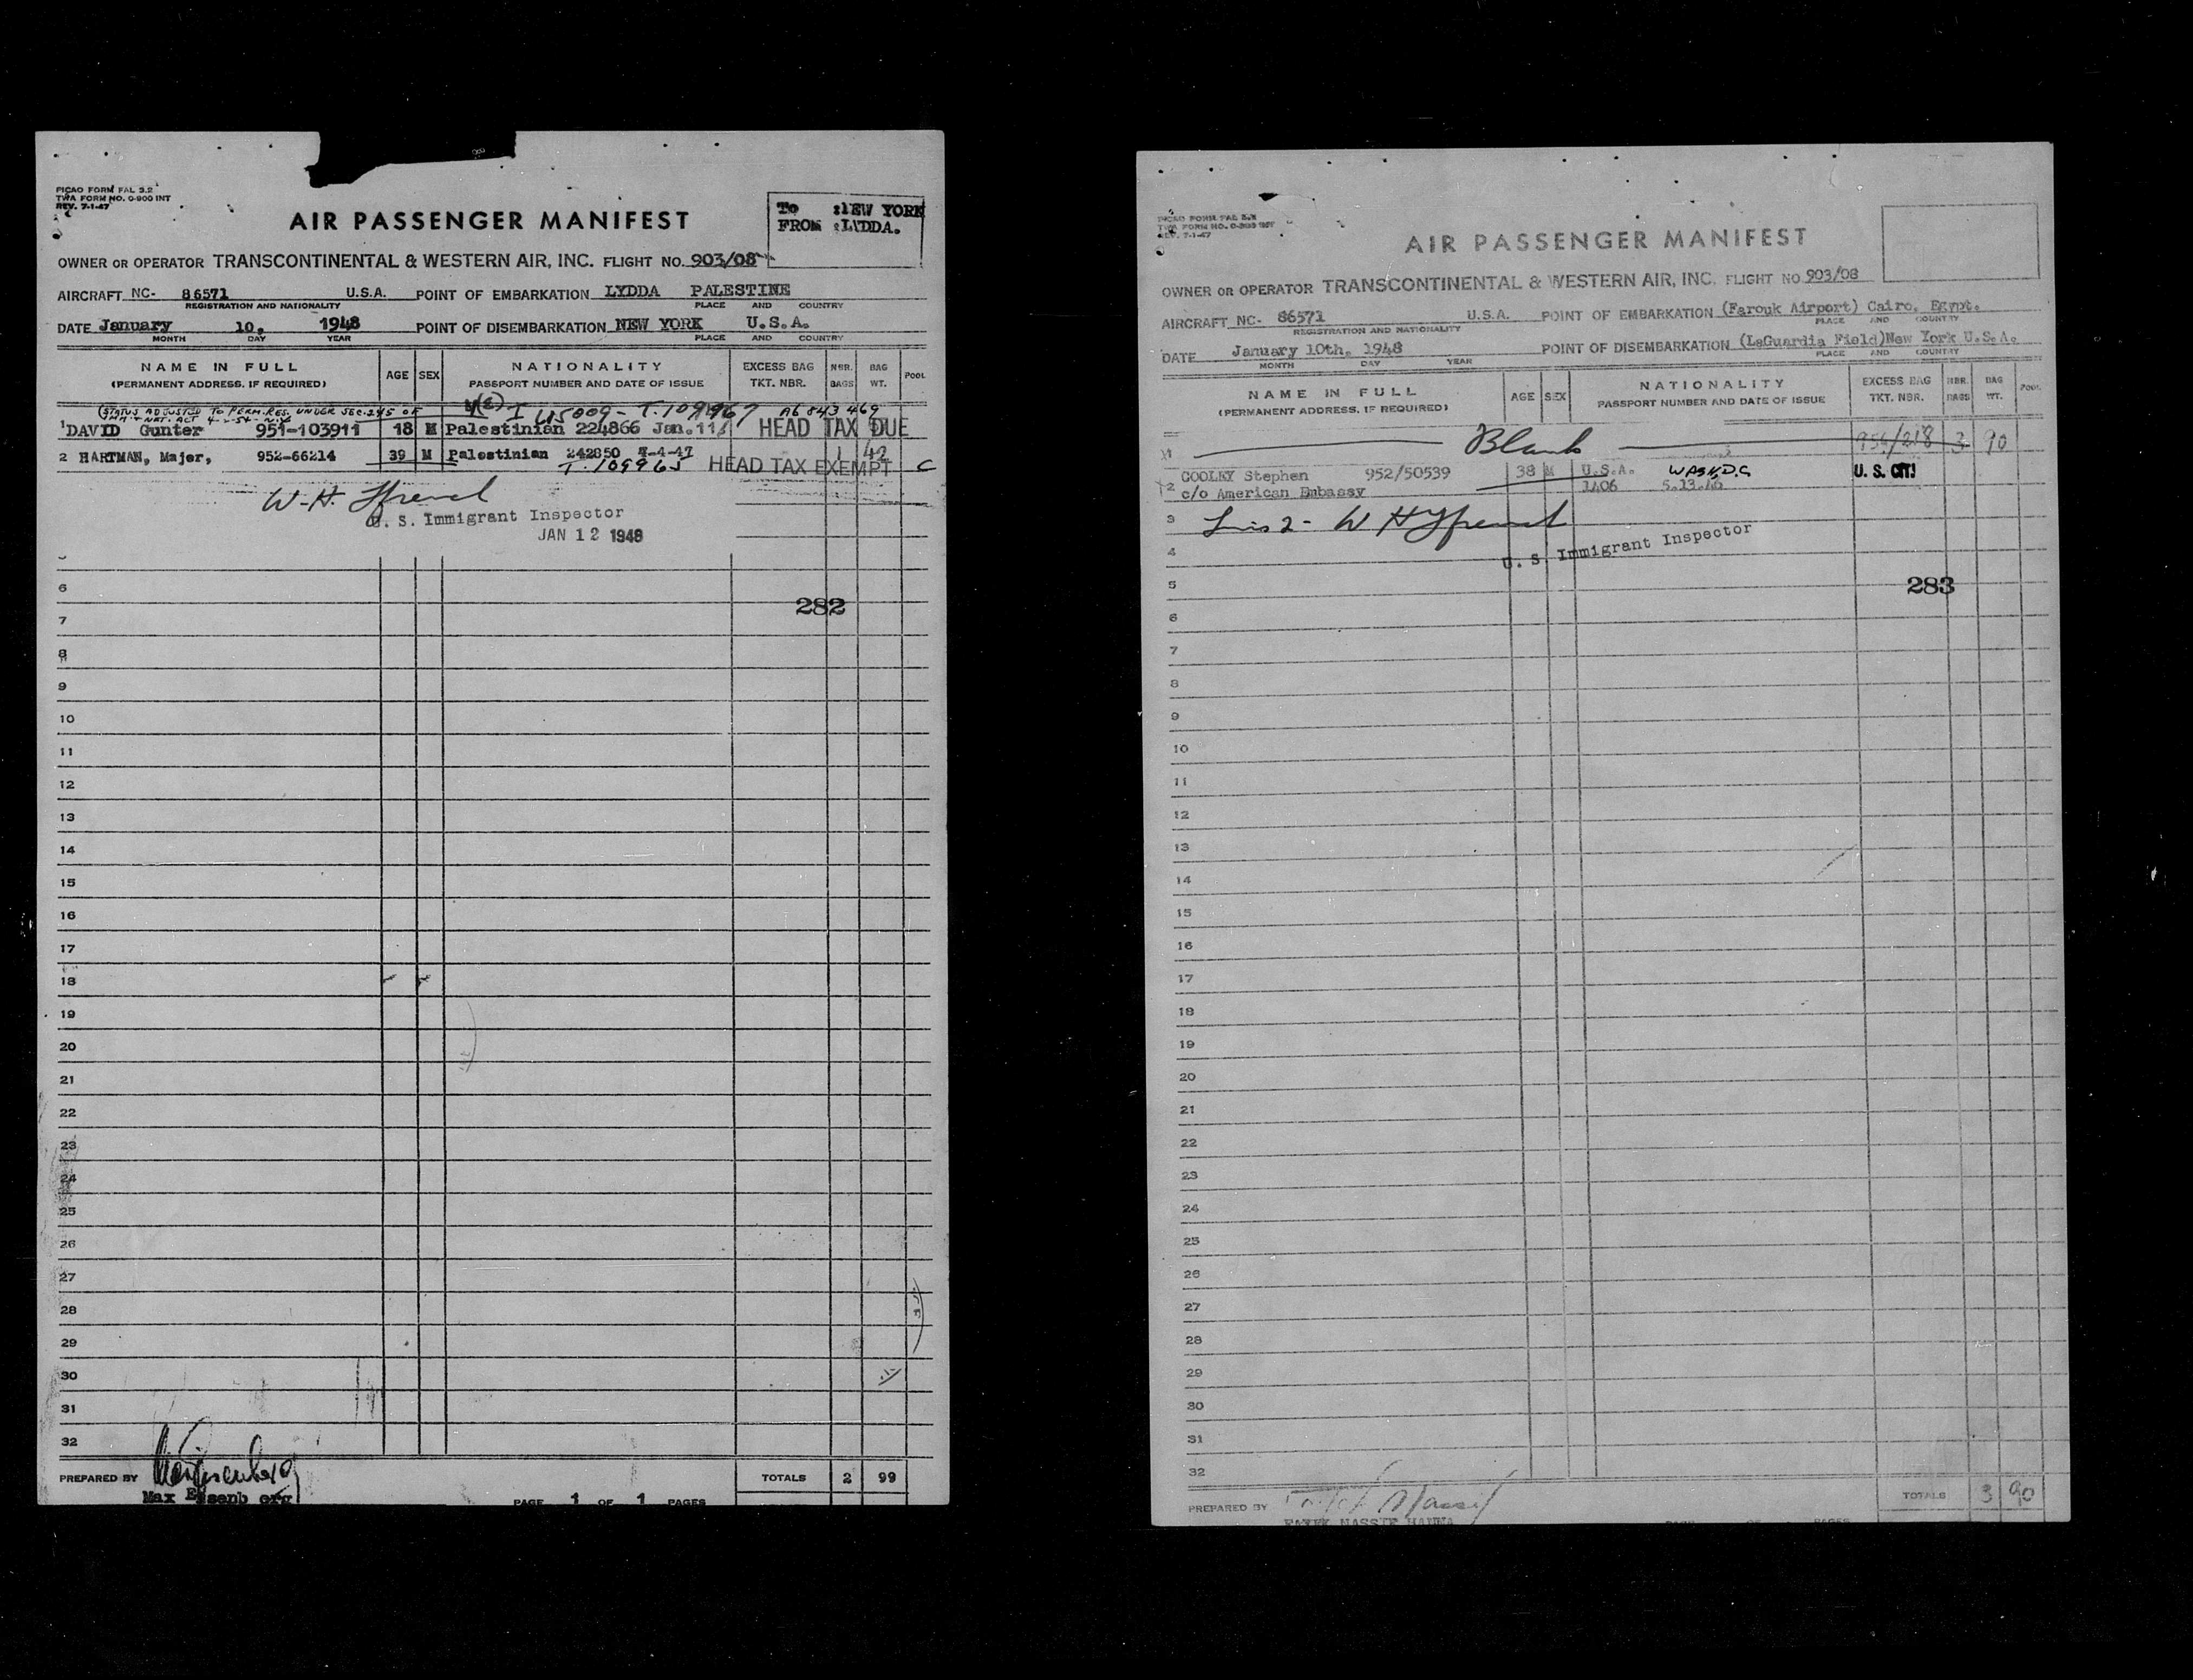 PICAO FORM FAL 3.2
TWA FORM NO. O-900 INT
REV. 7-1-47
AIR PASSENGER MANIFEST
To :NEW YORK
FROM :LYDDA.
OWNER OR OPERATOR TRANSCONTINENTAL & WESTERN AIR, INC. FLIGHT NO. 903/08
AIRCRAFT NC- 86571 U.S.A. POINT OF EMBARKATION LYDDA PALESTINE
REGISTRATION AND NATIONALITY PLACE AND COUNTRY
DATE January 10, 1948 POINT OF DISEMBARKATION NEW YORK U.S.A.
MONTH DAY YEAR PLACE AND COUNTRY
NAME IN FULL AGE SEX NATIONALITY EXCESS BAG NBR. BAG POOL
(PERMANENT ADDRESS, IF REQUIRED) PASSPORT NUMBER AND DATE OF ISSUE TKT. NBR. BAGS WT.
(STATUS ADJUSTED TO PERM. RES. UNDER SEC. 245 OF A6 843 469
1 DAVID Gunter 951-103911 18 M Palestinian 224866 Jan. HEAD TAX DUE
2 HARTMAN, Majer, 952-66214 39 M Palestinian 242850 1 42
T. 109965 HEAD TAX EXEMPT C
U. S. Immigrant Inspector
JAN 12 1948
6
282
7
8
9
10
11
12
13
14
15
16
17
18
19
20
21
22
23
24
25
26
27
28
29
30
31
32
PREPARED BY TOTALS 2 99
Max
PAGE 1 OF 1 PAGES
PICAO FORM FAL 3.2
TWA FORM NO. O-900 INT
REV. 7-1-47
AIR PASSENGER MANIFEST
OWNER OR OPERATOR TRANSCONTINENTAL & WESTERN AIR, INC. FLIGHT NO. 903/08
AIRCRAFT NC- 86571 U.S.A. POINT OF EMBARKATION (Farouk Airport) Cairo, Egypt.
REGISTRATION AND NATIONALITY PLACE AND COUNTRY
DATE January 10th, 1948 POINT OF DISEMBARKATION (LaGuardia Field)New York U.S.A.
MONTH DAY YEAR PLACE AND COUNTRY
NAME IN FULL AGE SEX NATIONALITY EXCESS BAG NBR. BAG POOL
(PERMANENT ADDRESS, IF REQUIRED) PASSPORT NUMBER AND DATE OF ISSUE TKT. NBR. BAGS WT.
1 Blank 3 90
2 COOLEY Stephen 952/50539 38 M U.S.A. WASH.D.C U. S. CIT!
c/o American Embassy 1406 5.13.46
3
4 U. S. Immigrant Inspector
5 283
6
7
8
9
10
11
12
13
14
15
16
17
18
19
20
21
22
23
24
25
26
27
28
29
30
31
32
PREPARED BY TOTALS 3 90
NASSIF HANNA
PAGE OF PAGES